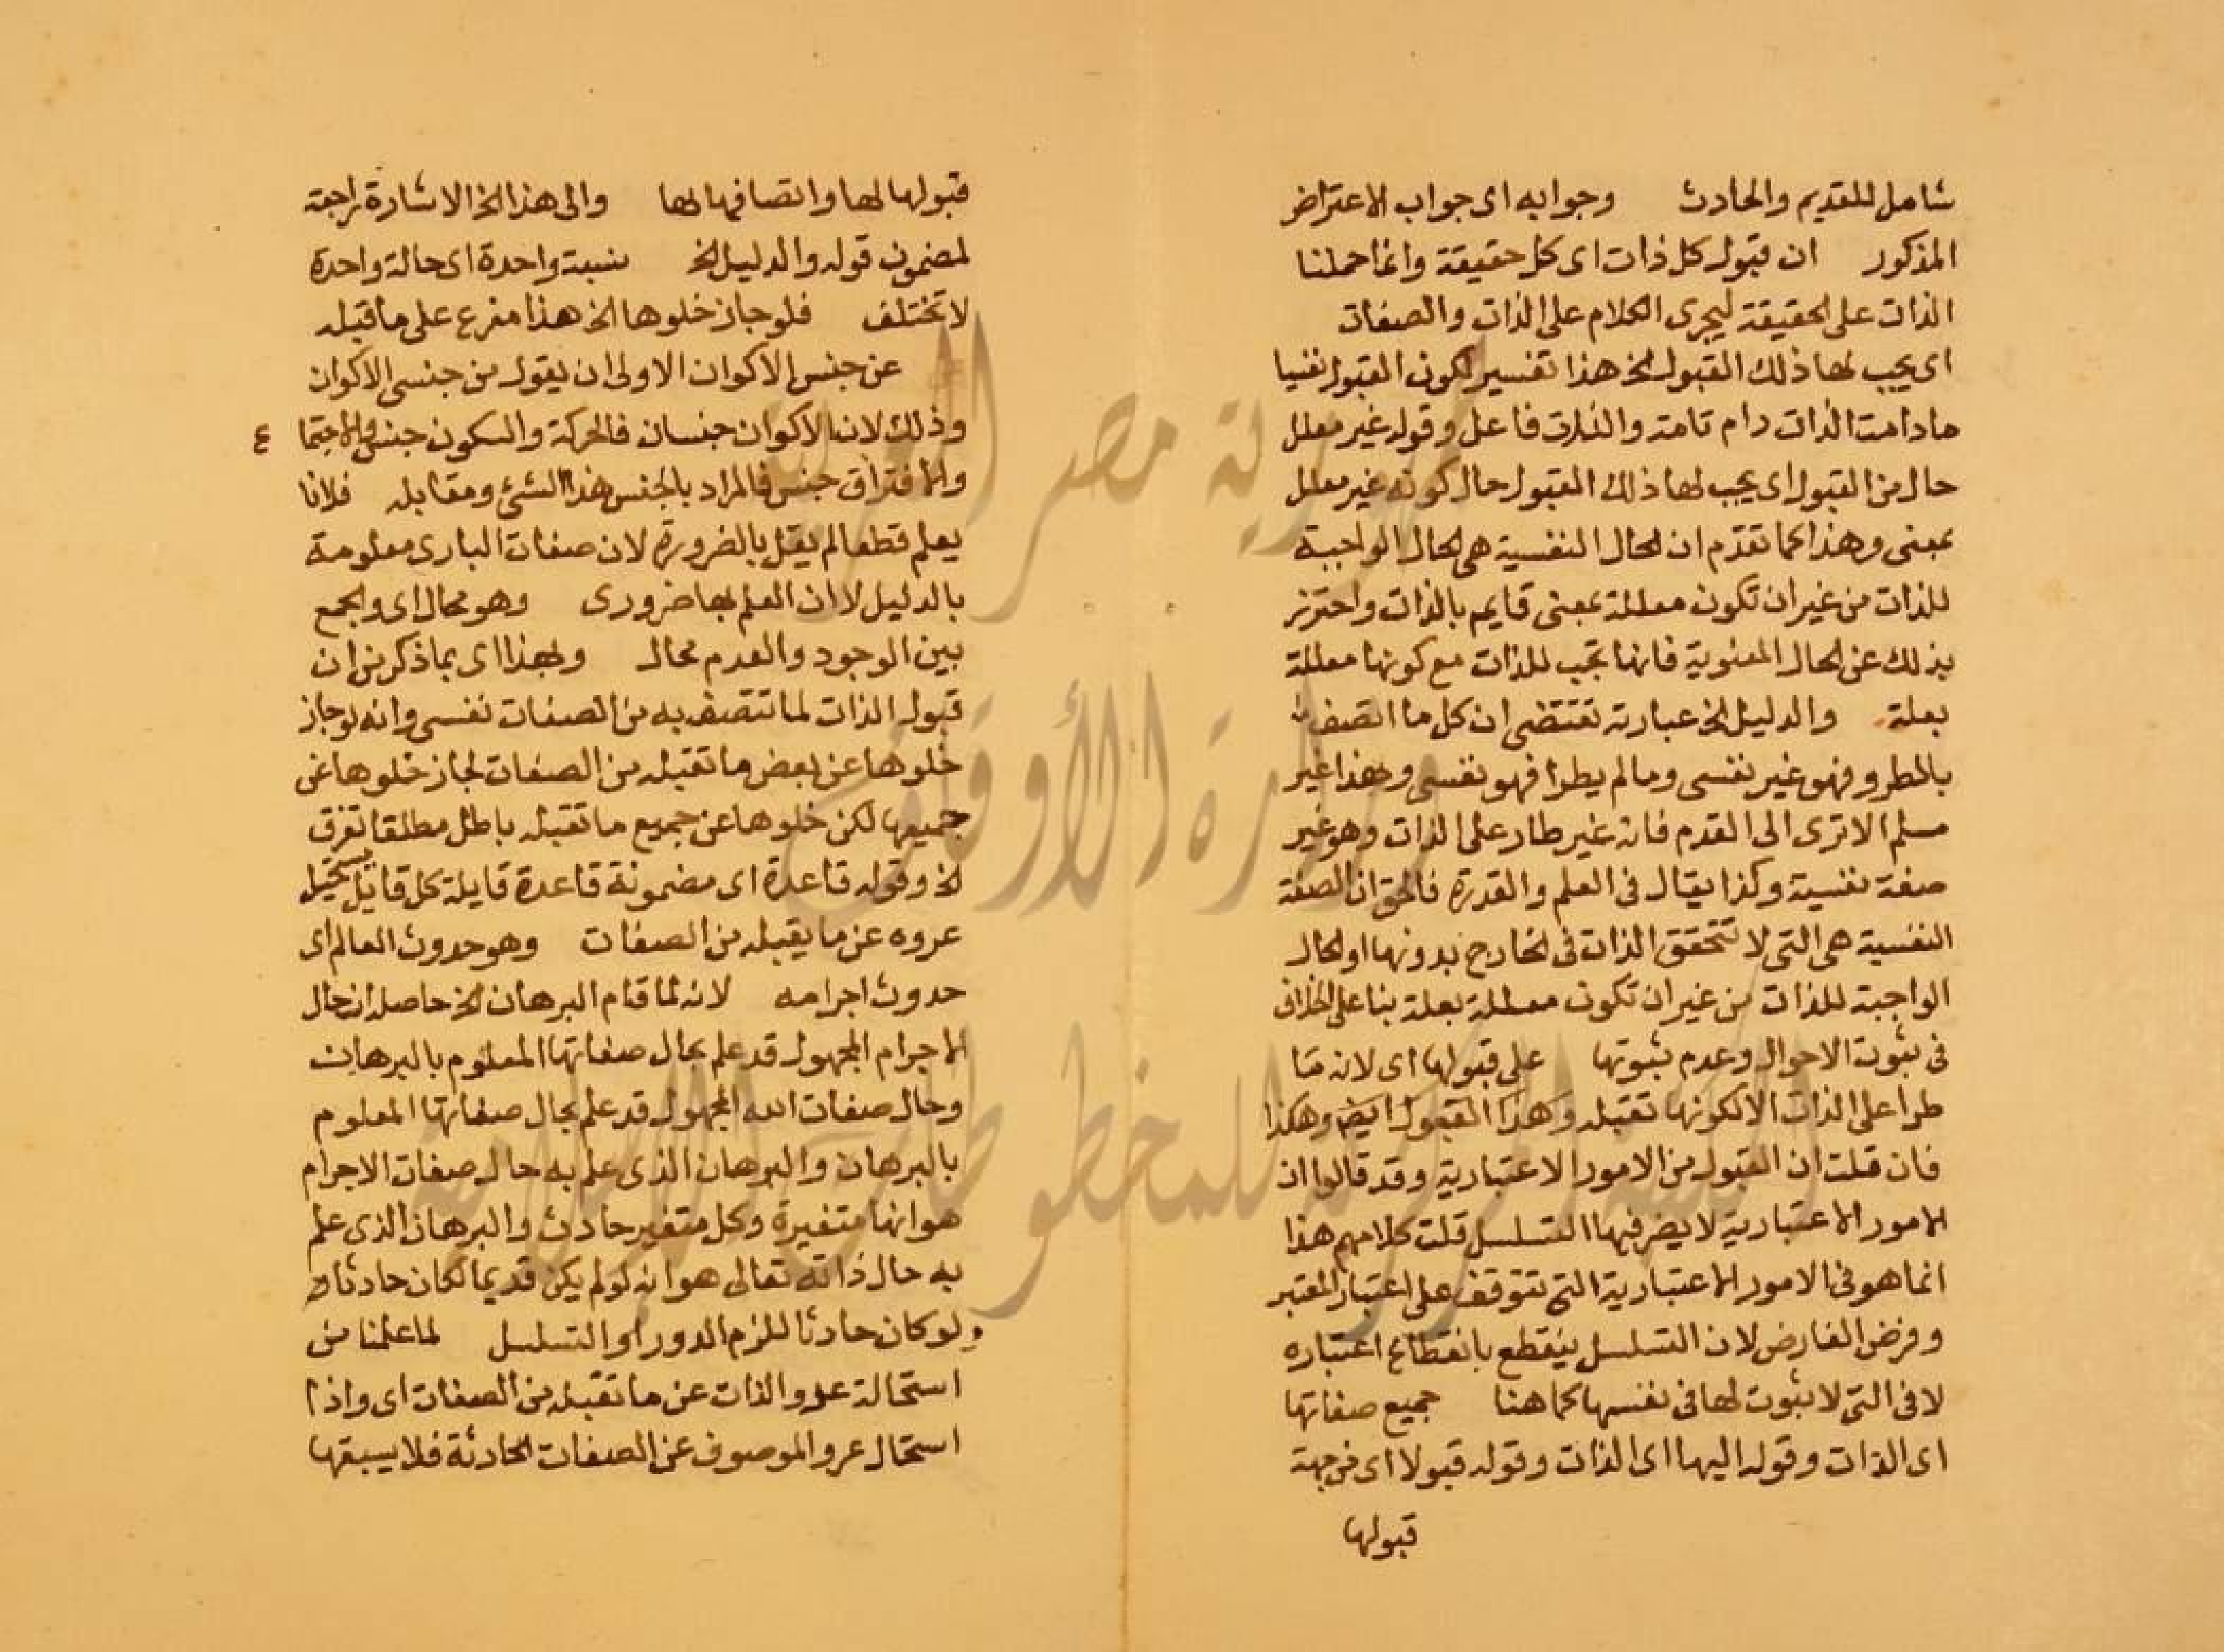 شامل للقديم والحادث وجوابه اى جواب الاعتراض
المذكور ان قبول كل ذات اى كل حقيقة وانما حملنا
الذات على الحقيقة ليجرى الكلام على الذات والصفات
اى يجب لها ذلك القبول الخ هذا تفسير لكون القبول نفسيا
مادامت الذات دام تامة والذات فاعل وقوله غير معلل
حال من القبول اى يجب لها ذلك القبول حال كونه غير معلل
بمعنى وهذا كما تقدم ان الحال النفسية هى الحال الواجبة
للذات من غير ان تكون معللة بمعنى قايم بالذات واحترز
بذلك عن الحال المعنوية فانها تجب للذات مع كونها معللة
بعلة والدليل الخ عبارته تقتضى ان كل ما اتصف
بالطرو فهو غير نفسى وما لم يطرا فهو نفسى وهذا غير
مسلم الا ترى الى القدم فانه غير طار على الذات وهو غير
صفة نفسية وكذا يقال فى العلم والقدرة فالحق ان الصفة
النفسية هى التى لا تتحقق الذات فى الخارج بدونها او الحال
الواجبة للذات من غير ان تكون معللة بعلة بنا على الخلاف
فى ثبوت الاحوال وعدم ثبوتها على قبولها اى لانه ما
طرا على الذات الا لكونها تقبله وهذا القبول ايضا وهكذا
فان قلت ان القبول من الامور الاعتبارية وقد قالوا ان
الامور الاعتبارية لا يضر فيها التسلسل قلت كلامهم هذا
انما هو فى الامور الاعتبارية التى تتوقف على اعتبار المعتبر
وفرض الفارض لان التسلسل ينقطع بانقطاع اعتباره
لا فى التى لا ثبوت لها فى نفسها كما هنا جميع صفاتها
اى الذات وقوله اليها اى الذات وقوله قبولا اى من جهة
قبولها
قبولها لها واتصافها لها والى هذا الخ الاشارة راجعة
لمضمون قوله والدليل الخ نسبة واحدة اى حالة واحدة
لا تختلف فلو جاز خلوها الخ هذا مفرع على ما قبله
عن جنس الاكوان الاولى ان يقول من جنسى الاكوان
وذلك لان الاكوان جنسان فالحركة والسكون جنس والاجتما ع
والافتراق جنس فالمراد بالجنس هذا الشئ ومقابله فلانا
يعلم قطعا لم يقل بالضرورة لان صفات البارى معلومة
بالدليل لا ان العلم بها ضرورى وهو محال اى والجمع
بين الوجود والعدم محال وبهذا اى بما ذكر من ان
قبول الذات لما تتصف به من الصفات نفسى وانه لو جاز
خلوها عن بعض ما تقبله من الصفات لجاز خلوها عن
جميعها لكن خلوها عن جميع ما تقبله باطل مطلقا تعرف
الخ وقوله قاعدة اى مضمونة قاعدة قايلة كل قابل يستحيل
عروه عن ما يقبله من الصفات وهو حدوث العالم اى
حدوث اجرامه لانه لما قام البرهان الخ حاصله ان حال
الاجرام المجهول قد علم بحال صفاتها المعلوم بالبرهان
وحال صفات الله المجهول قد علم بحال صفاتها المعلوم
بالبرهان والبرهان الذى علم به حال صفات الاجرام
هو انها متغيرة وكل متغير حادث والبرهان الذى علم
به حال ذاته تعالى هو انه لو لم يكن قديما لكان حادثا
ولو كان حادثا للزم الدور او التسلسل لما علمنا من
استحالة عرو الذات عن ما تقبله من الصفات اى واذا
استحال عرو الموصوف عن الصفات الحادثة فلا يسبقها
جمهورية مصر العربية
وزارة الأوقاف
المكتبة المركزية للمخطوطات الإسلامية